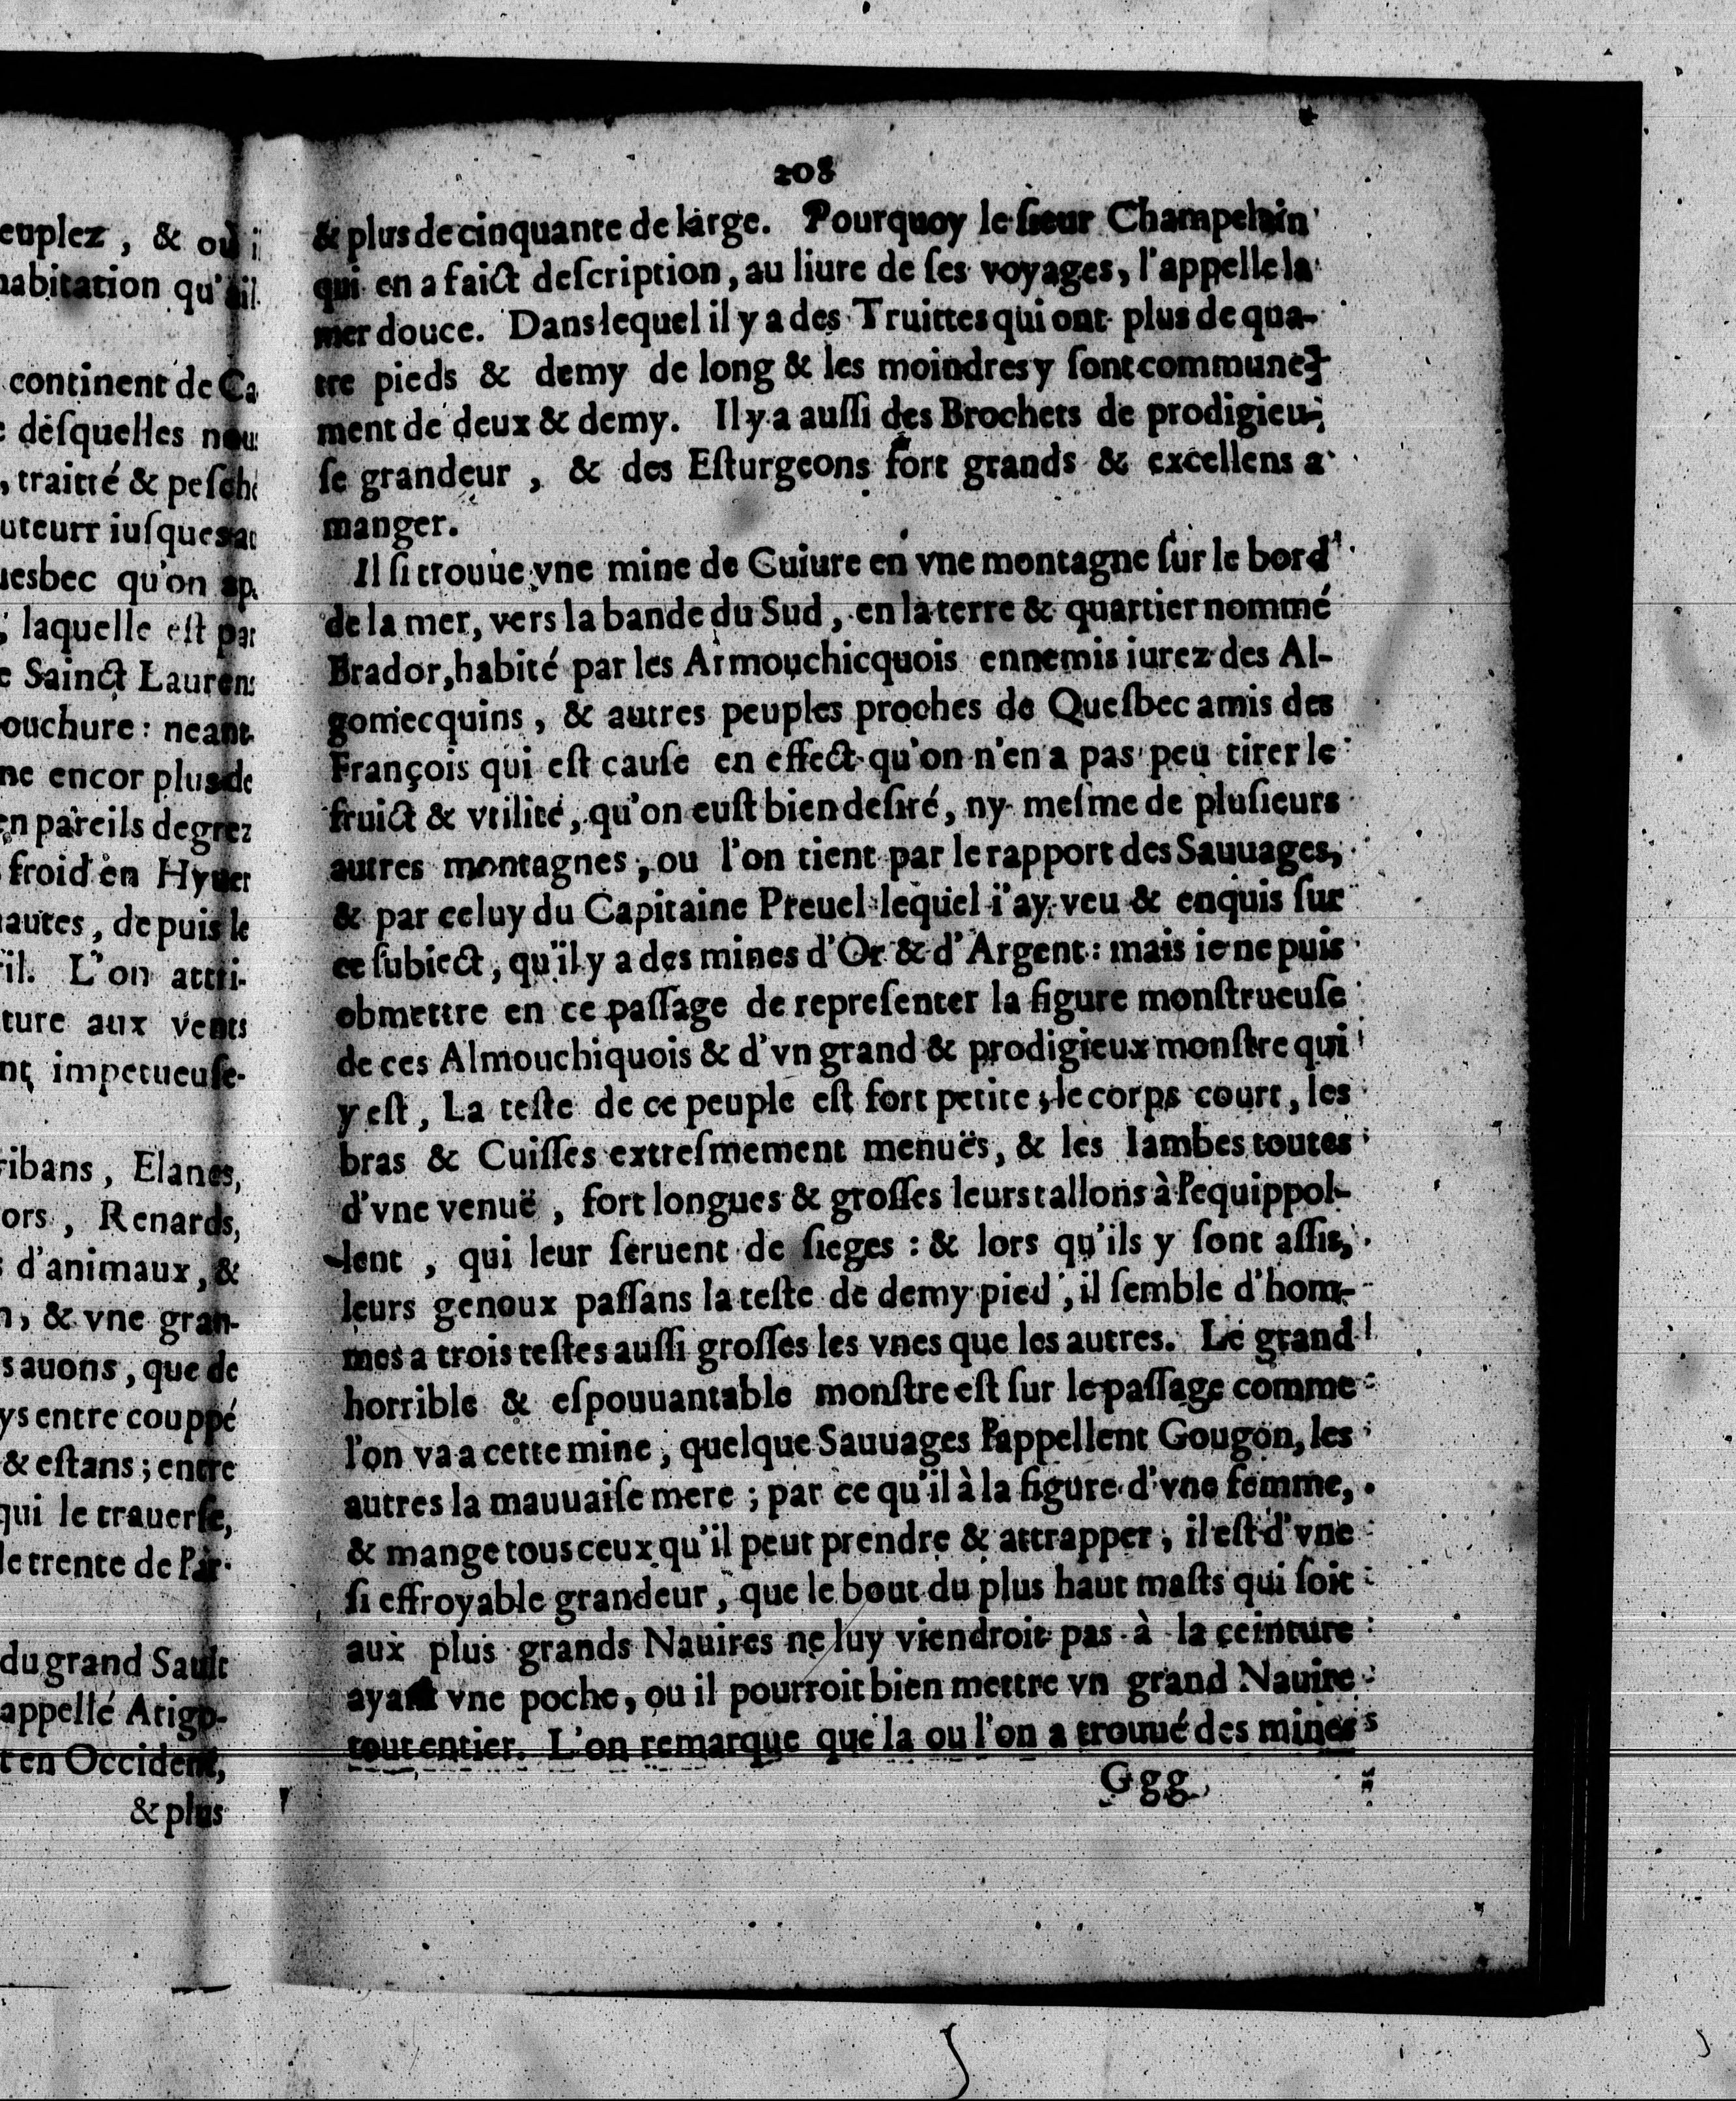 euplez, & où i
habitation qu'ail
continent de Ca
deſquelles nou
, traitté & peſche
uteurr iuſques au
uesbec qu'on ap.
; laquelle eſt par
e Sainct Laurens
ouchure : neant.
ne encor plus de
en pareils degrez
froid en Hyuer
hautes, depuis le
il. L'on attri-
ture aux vents
nt impetueuſe-
ribans, Elanes,
ors, Renards,
s d'animaux, &
n, & vne gran-
sauons, que de
ys entre couppé
& eſtans ; entre
qui le trauerſe,
de trente de Par-
du grand Sault
appellé Atigo-
t en Occident,
& plus
208
& plus de cinquante de large. Pourquoy le ſieur Champelain
qui en a faict deſcription, au liure de ſes voyages, l'appelle la
mer douce. Dans lequel il y a des Truittes qui ont plus de qua-
tre pieds & demy de long & les moindres y ſont commune-
ment de deux & demy. Il y a auſſi des Brochets de prodigieu-
ſe grandeur, & des Eſturgeons fort grands & excellens a
manger.
Il ſi trouue vne mine de Cuiure en vne montagne ſur le bord
de la mer, vers la bande du Sud, en la terre & quartier nommé
Brador, habité par les Armouchicquois ennemis iurez des Al-
gomecquins, & autres peuples proches de Queſbec amis des
François qui eſt cauſe en effect qu'on n'en a pas peu tirer le
fruict & vtilité, qu'on euſt bien deſiré, ny meſme de pluſieurs
autres montagnes, ou l'on tient par le rapport des Sauuages,
& par celuy du Capitaine Preuel lequel i'ay veu & enquis ſur
ce ſubiect, qu'il y a des mines d'Or & d'Argent : mais ie ne puis
obmettre en ce paſſage de repreſenter la figure monſtrueuſe
de ces Almouchiquois & d'vn grand & prodigieux monſtre qui
y eſt, La teſte de ce peuple eſt fort petite, le corps court, les
bras & Cuiſſes extreſmement menuës, & les Iambes toutes
d'vne venuë, fort longues & groſſes leurs tallons à l'equippol-
lent, qui leur ſeruent de ſieges : & lors qu'ils y ſont aſſis,
leurs genoux paſſans la teſte de demy pied, il ſemble d'hom-
mes a trois teſtes auſſi groſſes les vnes que les autres. Le grand
horrible & eſpouuantable monſtre eſt ſur le paſſage comme
l'on va a cette mine, quelque Sauuages l'appellent Gougon, les
autres la mauuaiſe mere ; par ce qu'il à la figure d'vne femme,
& mange tous ceux qu'il peut prendre & attrapper, il eſt d'vne
ſi effroyable grandeur, que le bout du plus haut maſts qui ſoit
aux plus grands Nauires ne luy viendroit pas à la ceinture
ayant vne poche, ou il pourroit bien mettre vn grand Nauire
tout entier. L'on remarque que la ou l'on a trouué des mines
Ggg